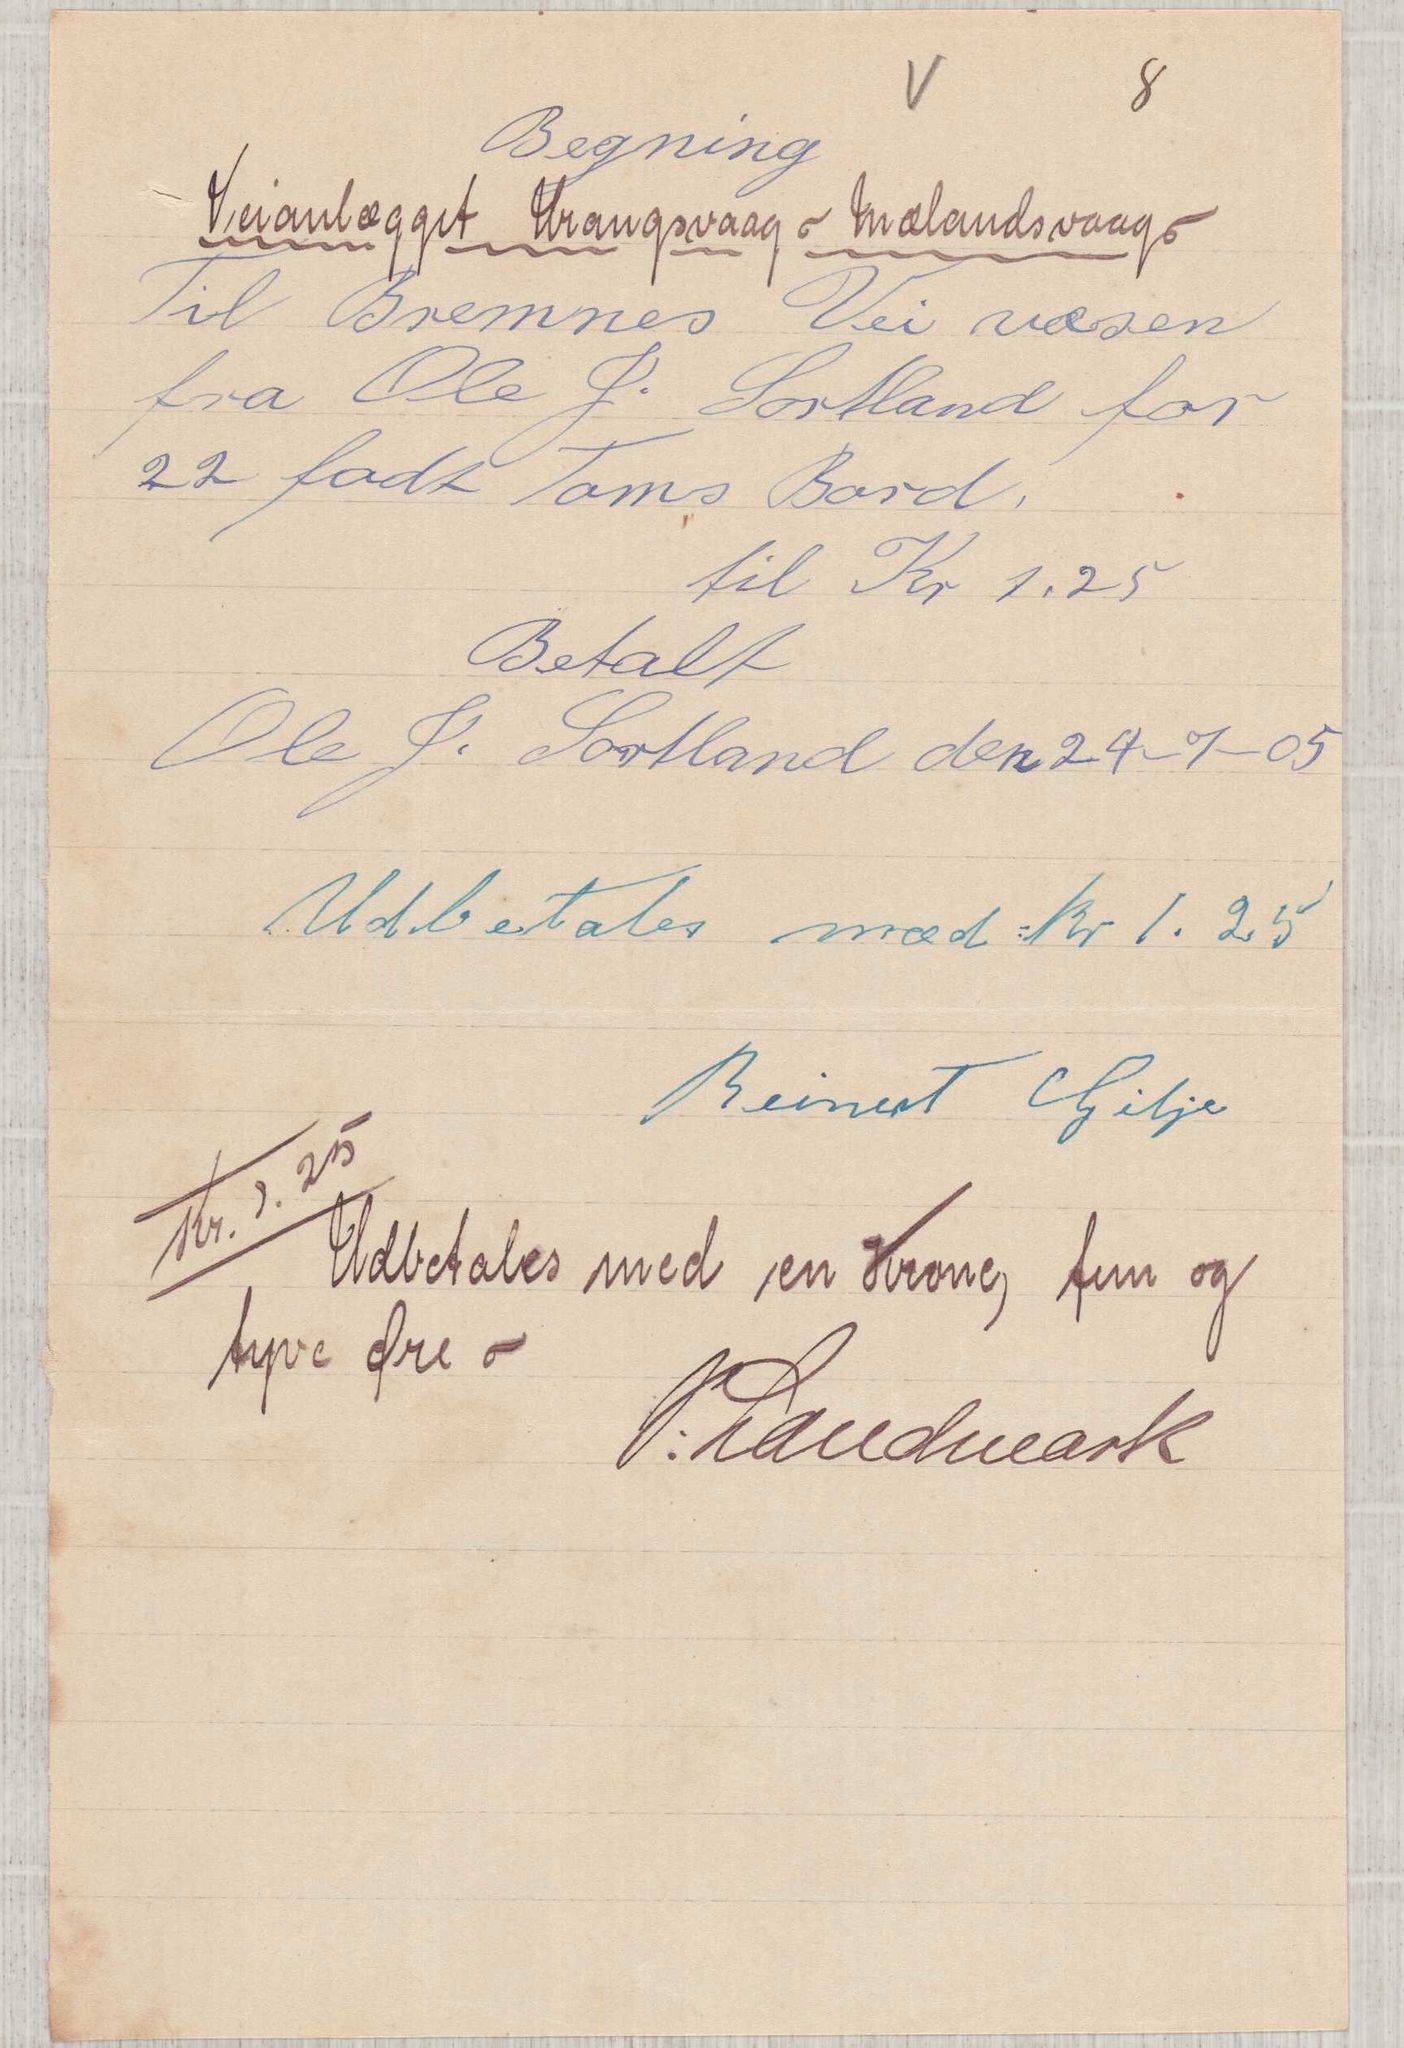 V 8
Begning
Veianlægget Urangsvaag - Mælandsvaag -
Til Bremnes Vei væsen
fra Ole J. Sortland for
22 fodt Toms Bord.
til Kr 1.25
Betalt
Ole J. Sortland den 24-7-05
Udbetales med Kr 1.25
Reinert Gilje
Kr. 1.25
Udbetales med en Krone, fem og
tyve Øre -
P. Landmark